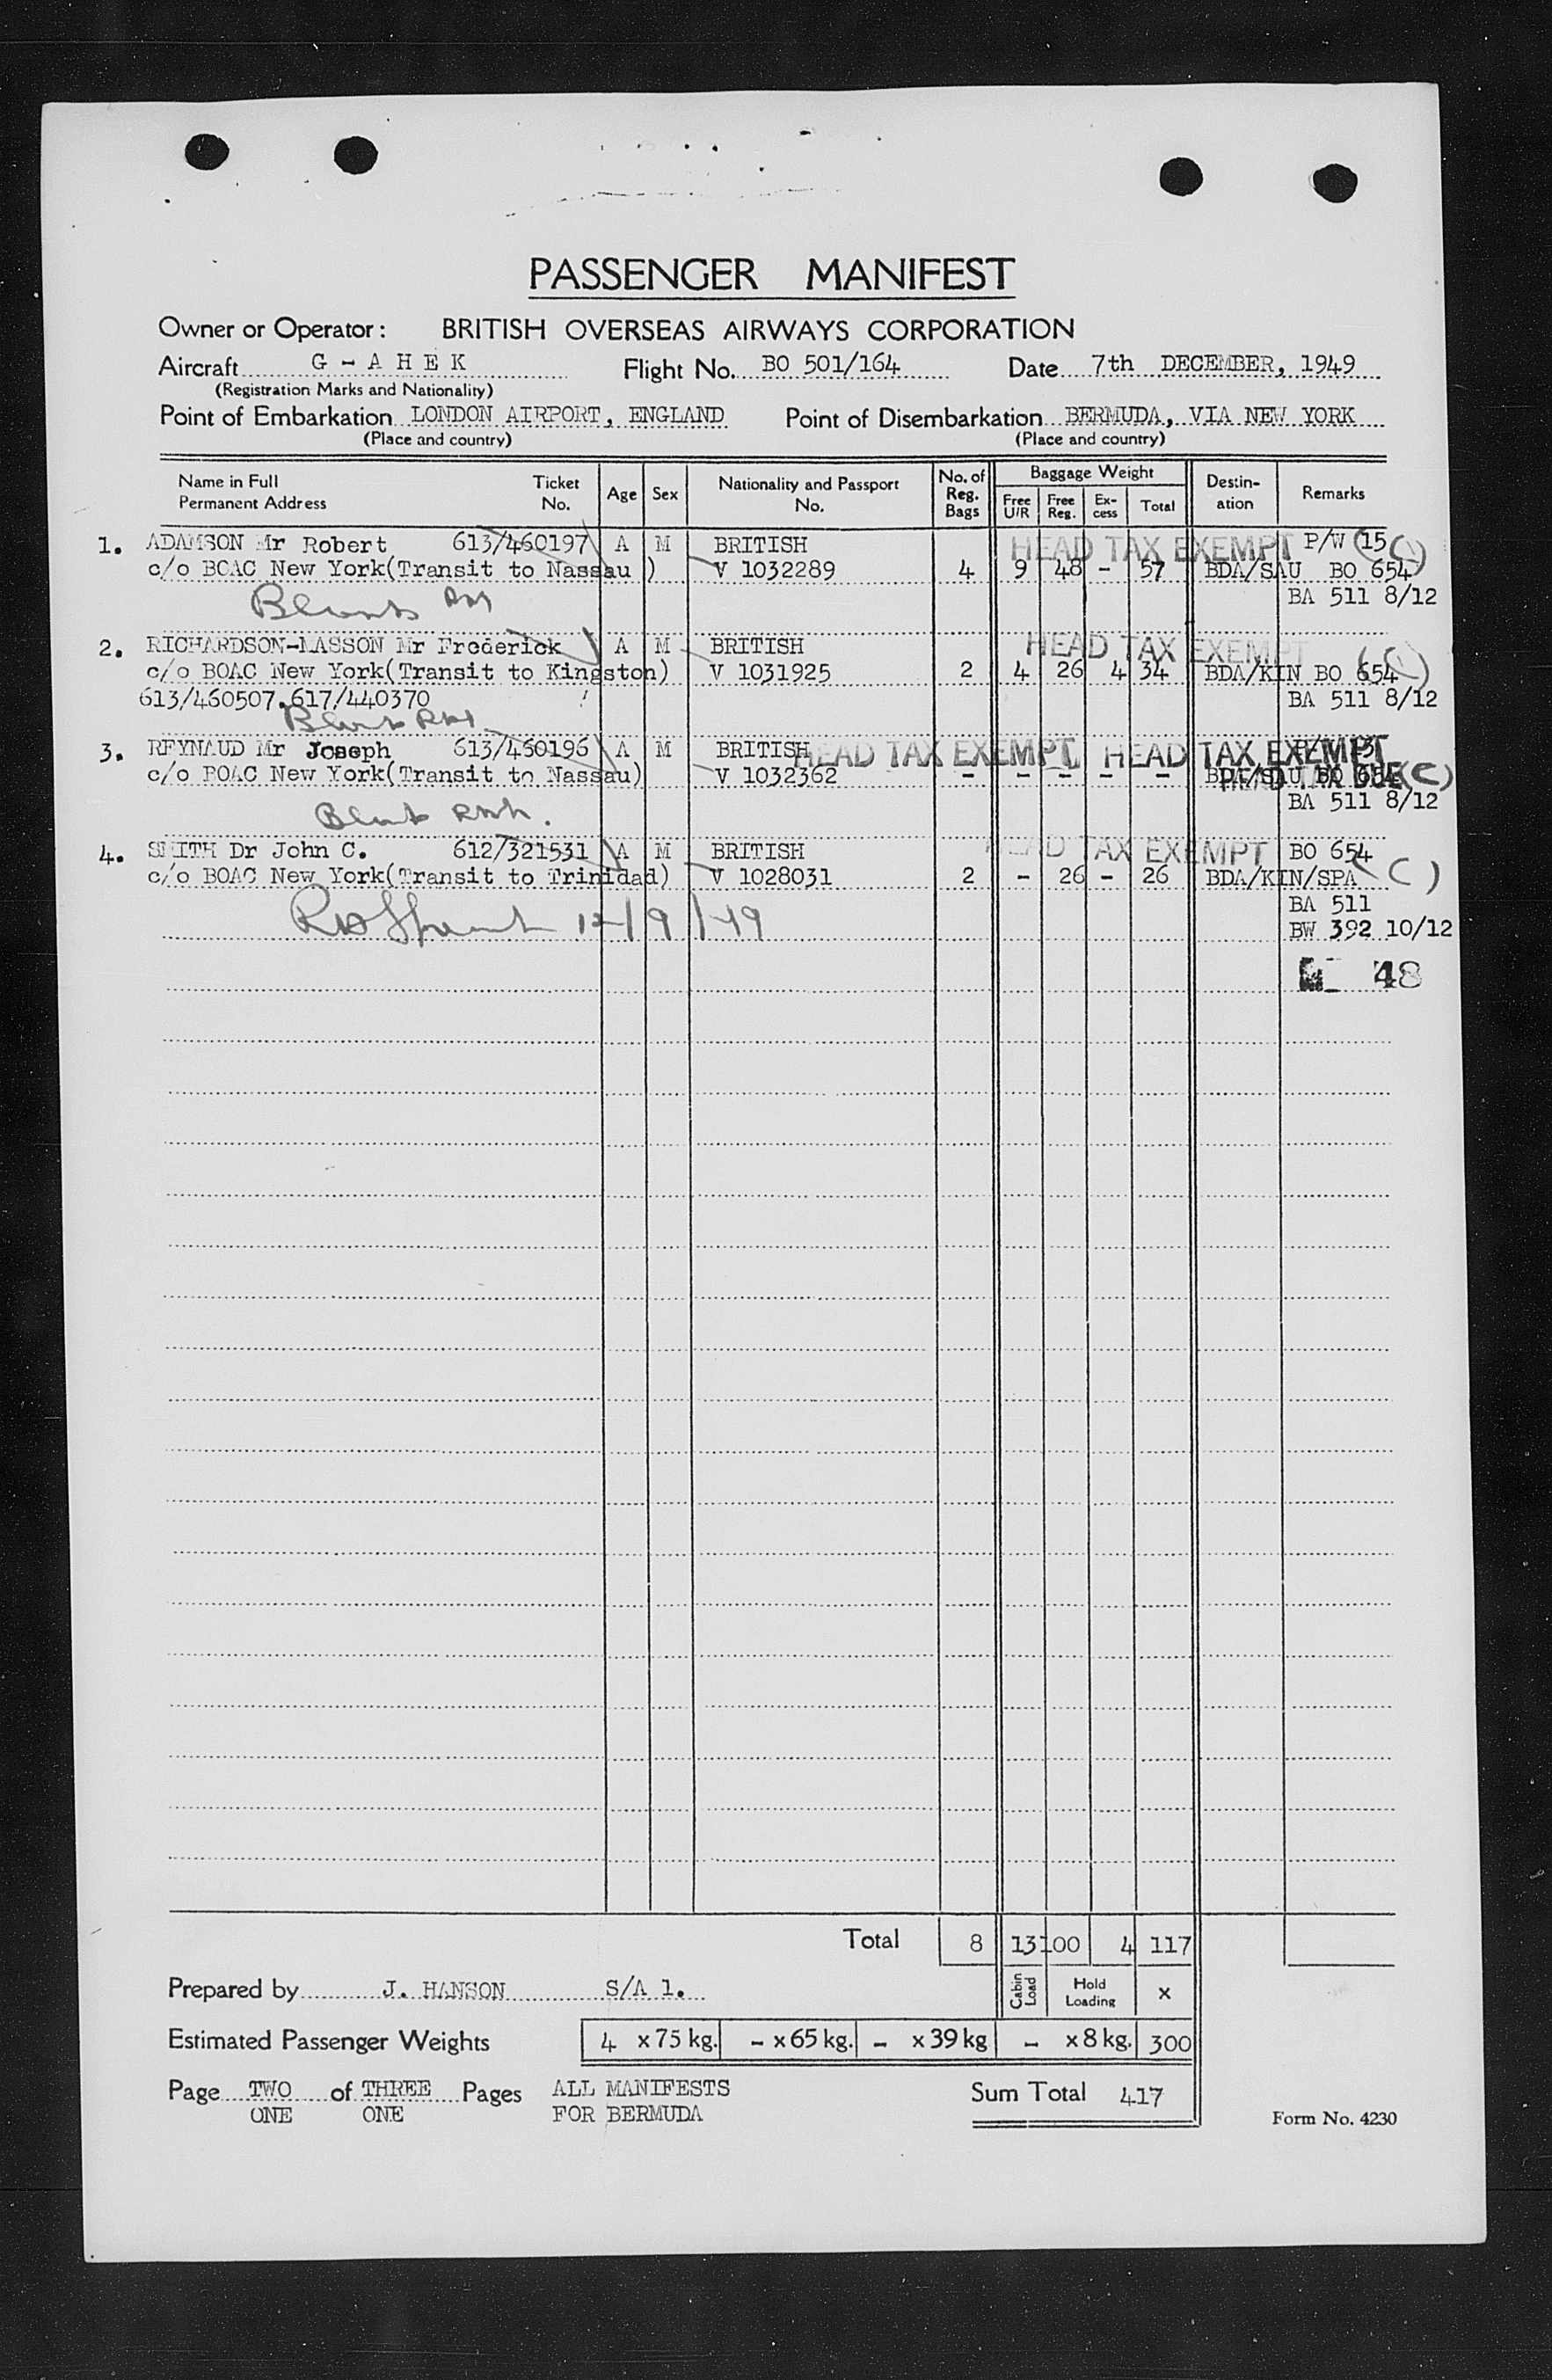 PASSENGER MANIFEST
Owner or Operator: BRITISH OVERSEAS AIRWAYS CORPORATION
Aircraft G - A H E K Flight No. BO 501/164 Date 7th DECEMBER, 1949
(Registration Marks and Nationality)
Point of Embarkation LONDON AIRPORT, ENGLAND Point of Disembarkation BERMUDA, VIA NEW YORK
(Place and country) (Place and country)
Name in Full Permanent Address Ticket No. Age Sex Nationality and Passport No. No. of Reg. Bags Baggage Weight Free U/R Free Reg. Ex-cess Total Destin-ation Remarks
1. ADAMSON Mr Robert 613/460197 A M BRITISH HEAD TAX EXEMPT P/W 15
c/o BOAC New York(Transit to Nassau ) V 1032289 4 9 48 - 57 BDA/SAU BO 654
BA 511 8/12
2. RICHARDSON-MASSON Mr Frederick A M BRITISH HEAD TAX EXEMPT
c/o BOAC New York(Transit to Kingston) V 1031925 2 4 26 4 34 BDA/KIN BO 654
613/460507.617/440370 BA 511 8/12
3. REYNAUD Mr Joseph 613/460196 A M BRITISH HEAD TAX EXEMPT HEAD TAX EXEMPT
c/o BOAC New York(Transit to Nassau) V 1032362 - - - - - BDA/SAU BO 654 (C)
BA 511 8/12
4. SMITH Dr John C. 612/321531 A M BRITISH HEAD TAX EXEMPT BO 654
c/o BOAC New York(Transit to Trinidad) V 1028031 2 - 26 - 26 BDA/KIN/SPA (C)
BA 511
12/9/49 BW 392 10/12
48
Total 8 13 100 4 117
Prepared by J. HANSON S/A 1. Cabin Load Hold Loading x
Estimated Passenger Weights 4 x 75 kg. - x 65 kg. - x 39 kg - x 8 kg. 300
Page TWO of THREE Pages ALL MANIFESTS Sum Total 417
ONE ONE FOR BERMUDA Form No. 4230